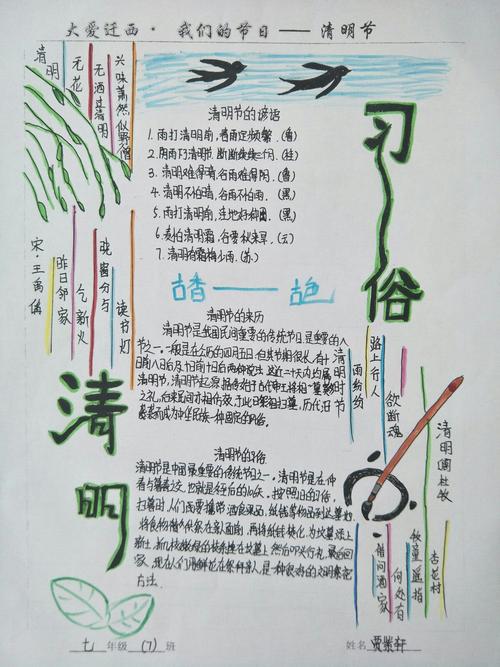 大爱迁西·我们的节日——清明节
清明
无花
无酒过清明
兴味萧然似野僧
宋·王禹偁
昨日邻家
乞新火
晓窗分与
读书灯
清明节的谚语
1.雨打清明前,春雨定频繁。(鲁)
2.阴雨下清明节,断断续续三个月。(桂)
3.清明难得晴,谷雨难得阴。(鲁)
4.清明不怕晴,谷雨不怕雨。(黑)
5.雨打清明前,洼地好种田。(黑)
6.麦怕清明霜,谷要秋来旱。(云)
7.清明有霜梅雨少。(苏)
习俗
古香——古色
清明节的来历
清明节是我国民间重要的传统节日,是重要的八
节之一。一般是在公历的四月五日,但其节期很长,有十
日前八日后及十日前十日后两种说法,这近二十天内均属
清明节。清明节起源
之礼,后来民间亦相仿效,于此日祭祖扫墓,历代沿
袭而成为中华民族一种固定的风俗。
清明
清明节的习俗
清明节是中国最重要的传统节日之一。
按照旧的习俗,
扫墓时,人们要携带酒食果品,纸钱等物品到达墓地,
将食物供祭在亲人墓前,再将纸钱焚化,为坟墓培上
新土,折几枝嫩绿的新枝插在坟墓上,然后叩头行礼,最后回
家。
方法。
清明
雨纷纷
路上行人
欲断魂
清明 唐 杜牧
借问酒家
何处有
牧童遥指
杏花村
七年级(7)班
姓名 贾紫轩